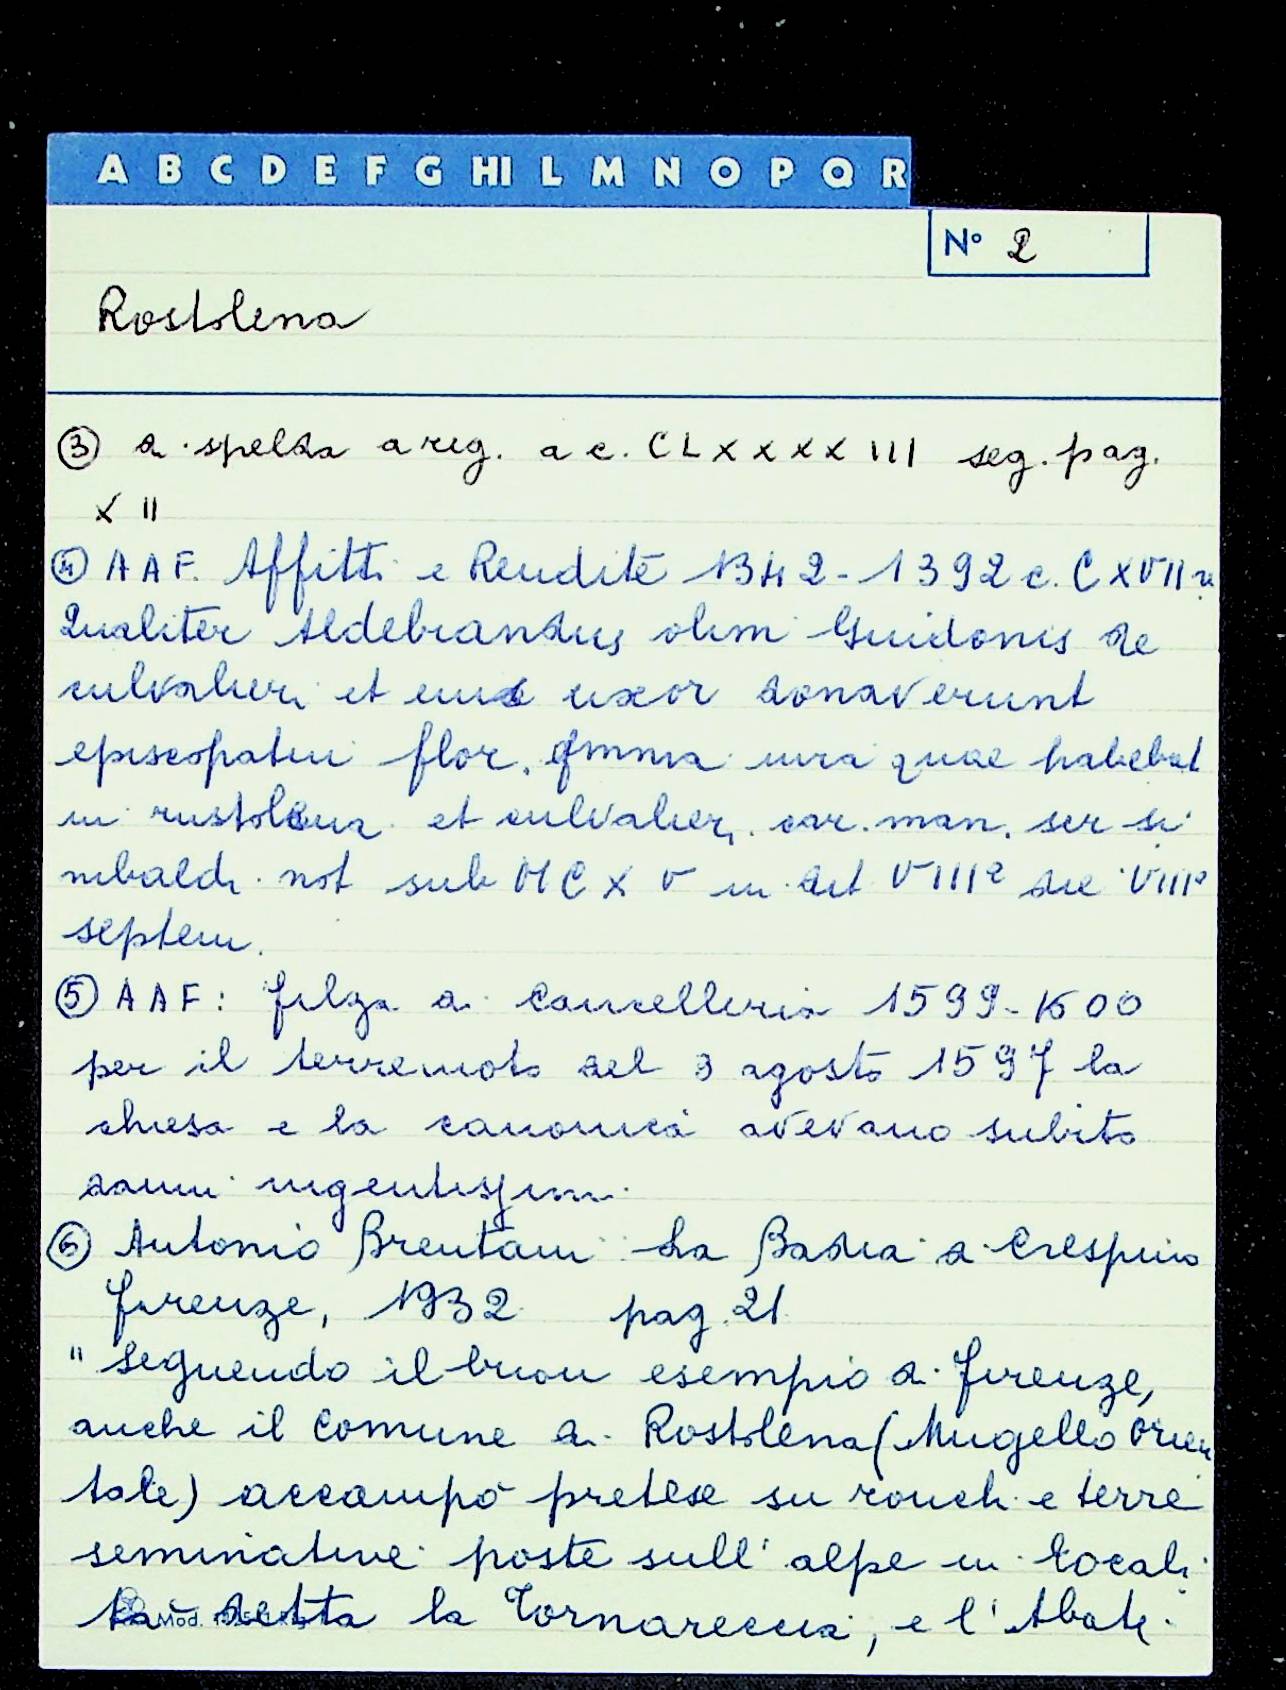 A B C D E F G HI L M N O P Q R
N° 2
Rostolena
③ di spelda a reg. a c. CLXXXXIII seg. pag.
XII
④ AAF. Affitti e Rendite 1342-1392 c. CXVII
Qualiter Aldebrandus olim Guidonis de
culvalieri et eius uxor donaverunt
episcopatui flor. omnia iura quae habebat
in rustolena et culvalieri. car. man. ser si
nibaldi not sub MCXV in dit VIIIe die VIIIe
septem.
⑤ AAF: filza di Cancelleria 1599-1600
per il terremoto del 3 agosto 1597 la
chiesa e la canonica avevano subito
danni ingentissimi.
⑥ Antonio Brentani La Badia di Crespino
firenze, 1932 pag. 21
"Seguendo il buon esempio di firenze,
anche il Comune di Rostolena (Mugello Orien
tale) accampò pretese su ronchi e terre
seminative poste sull'alpe in locali
tà detta la Tornareccia, e l'Abate
Mod.